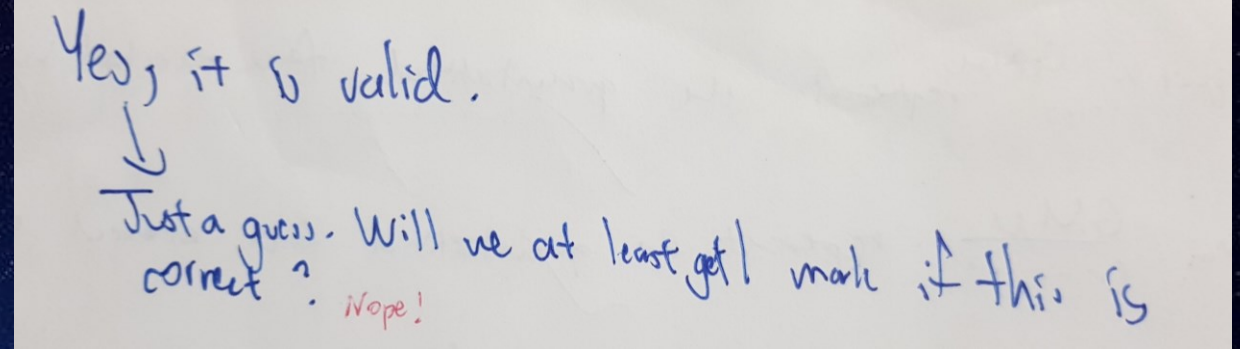 Yes, it is valid.
Just a guess. Will we at least get 1 mark if this is
correct? Nope!